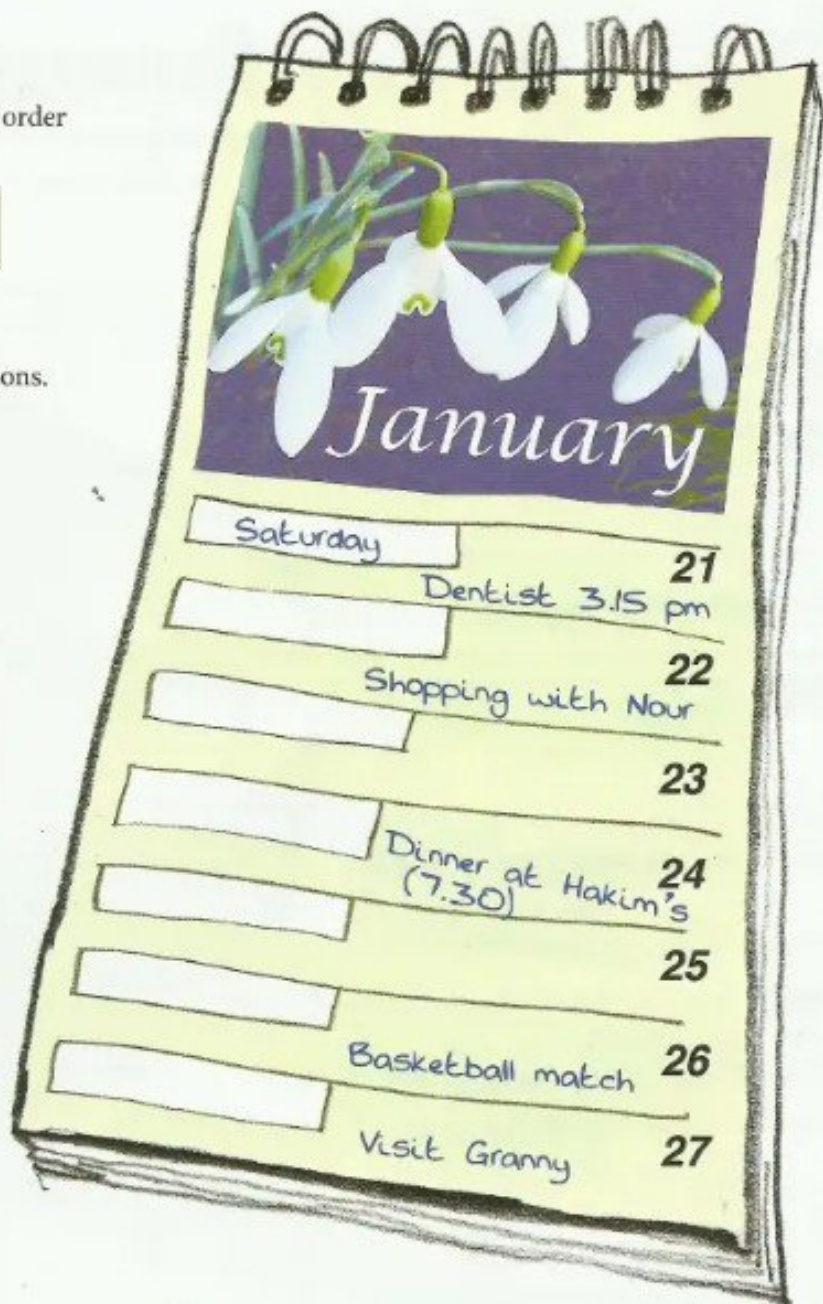 order
ons.
January
Saturday
21
Dentist 3.15 pm
22
Shopping with Nour
23
24
Dinner at Hakim's
(7.30)
25
26
Basketball match
27
Visit Granny